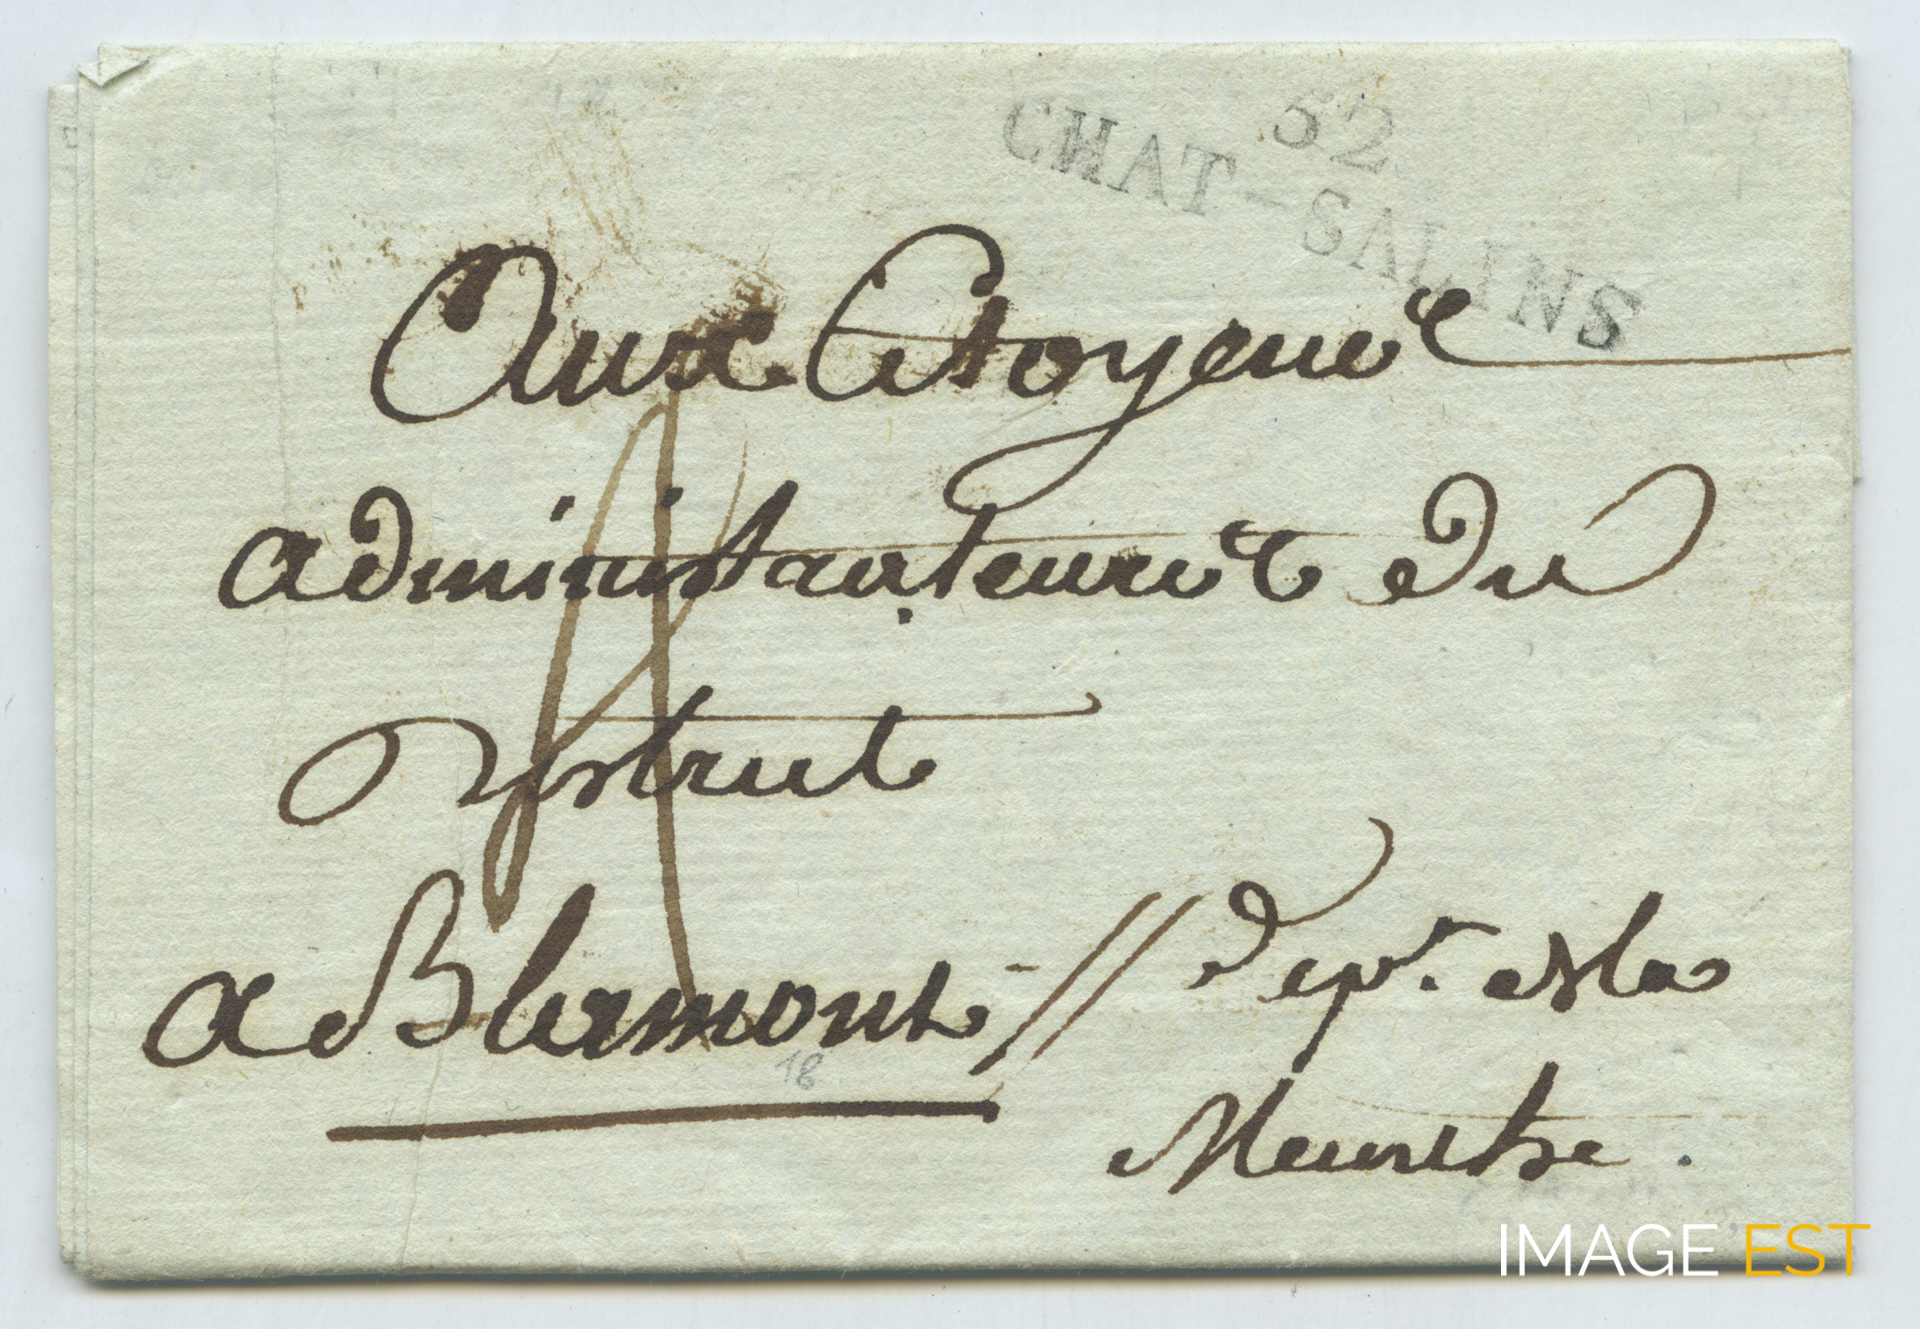 52
CHAT-SALINS
Aux Citoyens
administrateurs du
district
a Blamont // dept. de la
18
Meurthe.
IMAGE EST